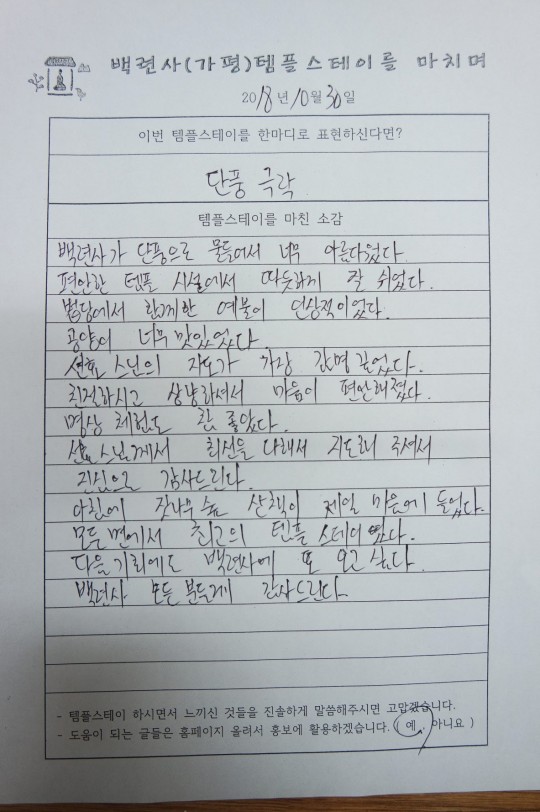 백련사(가평)템플스테이를 마치며
2018년 10월 30일
이번 템플스테이를 한마디로 표현하신다면?
단풍 극락
템플스테이를 마친 소감
백련사가 단풍으로 물들어서 너무 아름다웠다.
편안한 템플 시설에서 따뜻하게 잘 쉬었다.
법당에서 함께한 예불이 인상적이었다.
공양이 너무 맛있었다
스님의 지도가 가장 감명 깊었다.
친절하시고 상냥하셔서 마음이 편안해졌다.
명상 체험도 참 좋았다.
스님께서 최선을 다해서 지도해 주셔서
진심으로 감사드린다.
아침에 잣나무 숲 산책이 제일 마음에 들었다.
모든 면에서 최고의 템플 스테이였다.
다음 기회에도 백련사에 또 오고 싶다.
백련사 모든 분들께 감사드린다.
- 템플스테이 하시면서 느끼신 것들을 진솔하게 말씀해주시면 고맙겠습니다.
- 도움이 되는 글들은 홈페이지 올려서 홍보에 활용하겠습니다. ( 예, 아니요 )